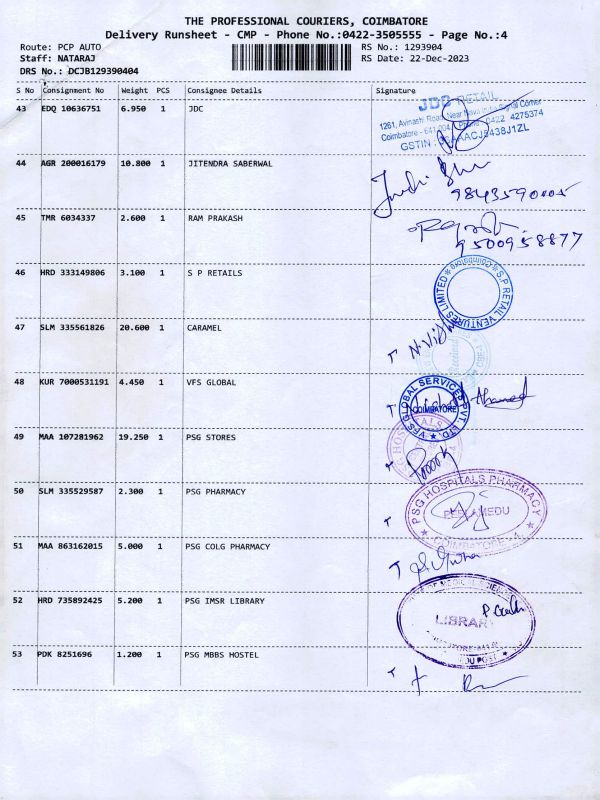 THE PROFESSIONAL COURIERS, COIMBATORE
Delivery Runsheet - CMP - Phone No.:0422-3505555 - Page No.:4
Route: PCP AUTO RS No.: 1293904
Staff: NATARAJ RS Date: 22-Dec-2023
DRS No.: DCJB129390404
S No Consignment No Weight PCS Consignee Details Signature
43 EDQ 10636751 6.950 1 JDC
JDC RETAIL
1261, Avinashi Road, Near Corner
Coimbatore - 641 004. 0422 4275374
GSTIN
44 AGR 200016179 10.800 1 JITENDRA SABERWAL
9843590005
45 TMR 6034337 2.600 1 RAM PRAKASH
9500958877
46 HRD 333149806 3.100 1 S P RETAILS
S.P. RETAIL VENTURES LIMITED * Coimbatore *
47 SLM 335561826 20.600 1 CARAMEL
48 KUR 7000531191 4.450 1 VFS GLOBAL
VFS GLOBAL SERVICES PVT. LTD. ★
COIMBATORE
49 MAA 107281962 19.250 1 PSG STORES
50 SLM 335529587 2.300 1 PSG PHARMACY
PSG HOSPITALS PHARMACY
PEELAMEDU
★ COIMBATORE - 4 ★
51 MAA 863162015 5.000 1 PSG COLG PHARMACY
52 HRD 735892425 5.200 1 PSG IMSR LIBRARY
LIBRARY
53 PDK 8251696 1.200 1 PSG MBBS HOSTEL